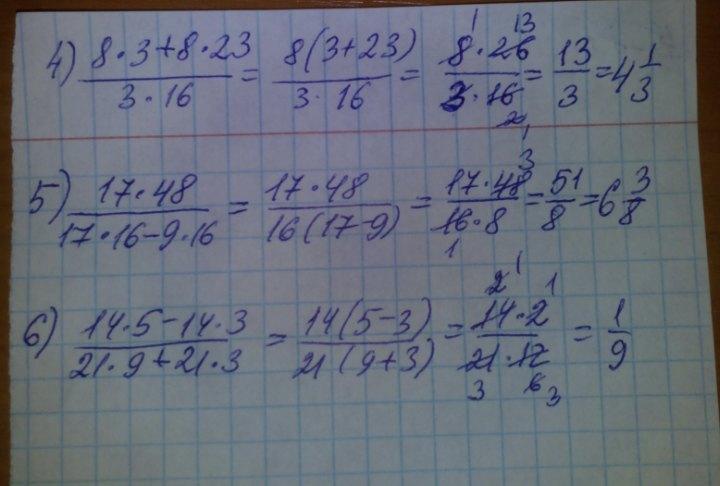 4) (8·3+8·23)/(3·16) = 8(3+23)/(3·16) = (8·26)/(3·16) = 13/3 = 4 1/3
5) (17·48)/(17·16-9·16) = (17·48)/(16(17-9)) = (17·48)/(16·8) = 51/8 = 6 3/8
6) (14·5-14·3)/(21·9+21·3) = 14(5-3)/(21(9+3)) = (14·2)/(21·12) = 1/9